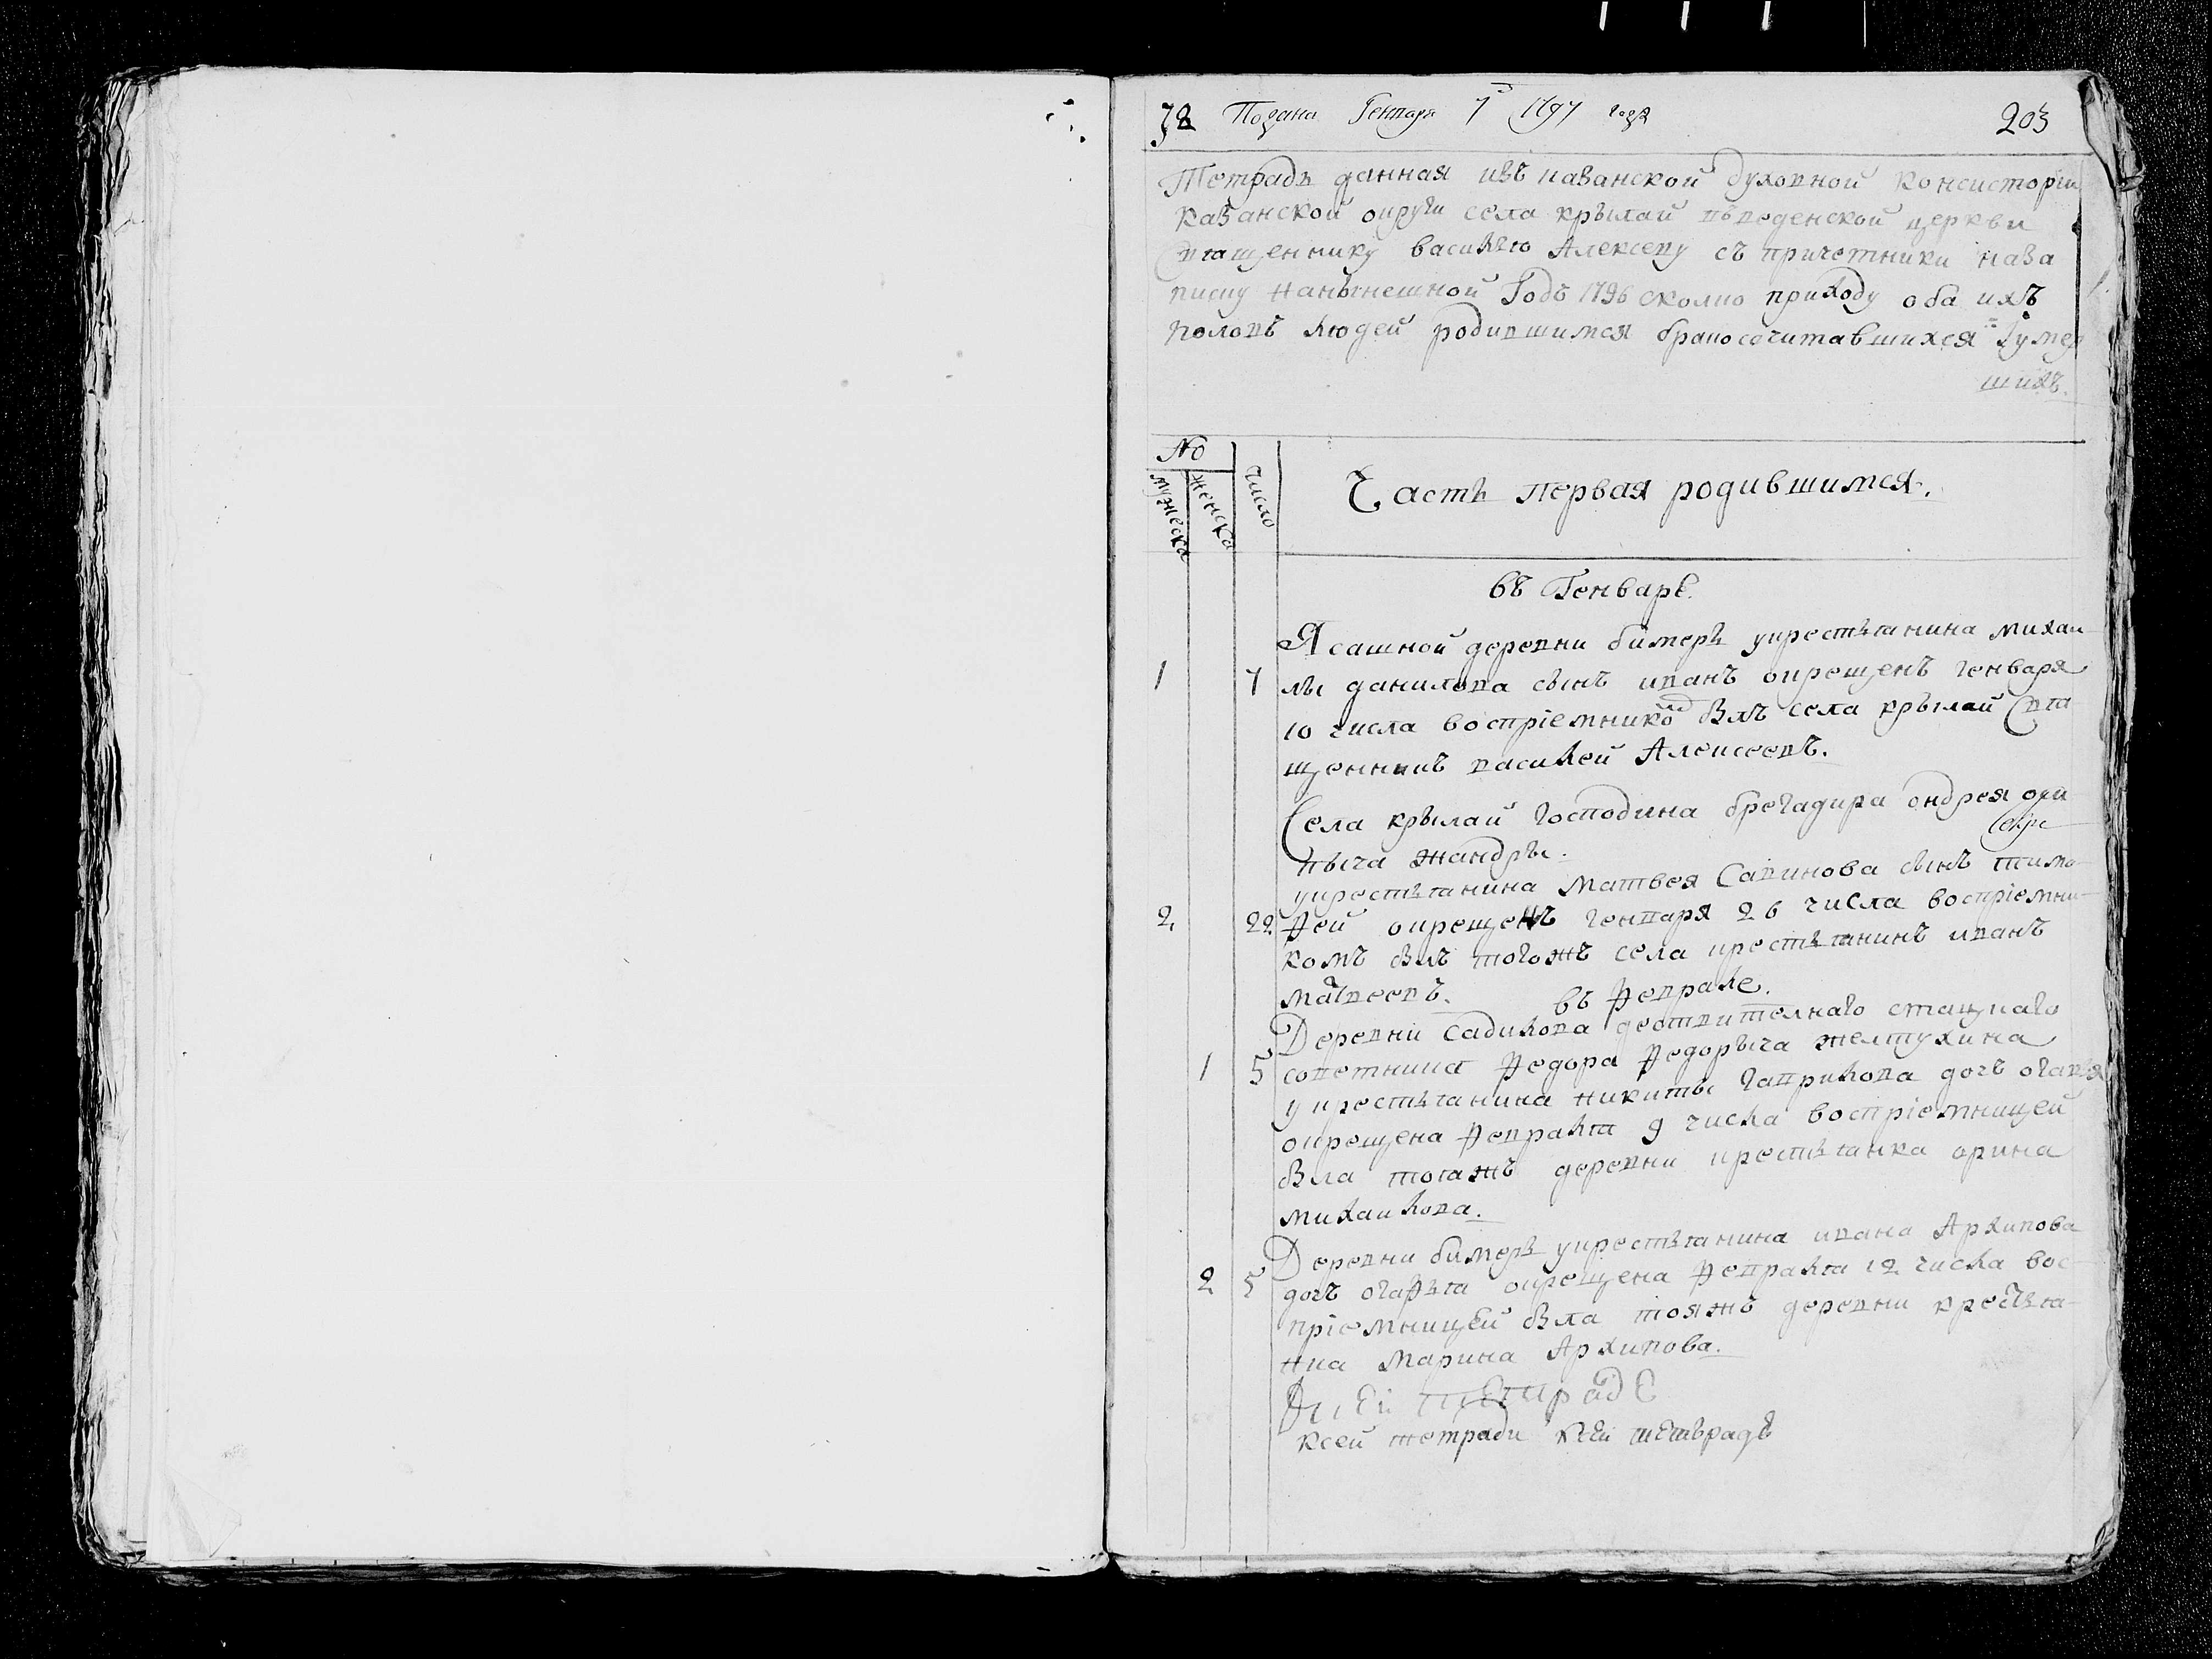 78 Подана Генваря 7 1797 года 203
Тетрадь данная изъ казанской духовной консистории
казанской округи села крылай въведенской церкви
священнику василью Алексеву съ причетники на за
писку нанынешной Годъ 1796 сколко приходу оба ихъ
половъ людей родившимся бракосочитавшихся i умер
шихъ.
№
мужеска женска число
Часть первая родившимся.
въ Генваре.
Ясашной деревни бимерь укрестьянина михаи
1 7 лы данилова сынъ иванъ окрещенъ генваря
10 числа восприемником былъ села крылай свя
щенникъ василей Алексеевъ.
Села крылай господина брегадира андрея оси
пыча жандры. секре
укрестьянина матвея Савинова сынъ тимо
2. 22 ѳей окрещенъ генваря 26 числа восприемни
комъ былъ тогожъ села крестьянинъ иванъ
матвеевъ. въ ѳеврале.
Деревни садилова действителнаго стацкаго
1 5 советника ѳедора ѳедорыча желтухина
укрестьянина никиты гаврилова дочь огаѳья
окрещена ѳевраля 9 числа восприемницей
была тояжъ деревни крестьянка орина
михаилова.
Деревни бимерь укрестьянина ивана Архипова
2 5 дочь огаѳья окрещена ѳевраля 12 числа вос
приемницей была тояжъ деревни крестья
нка марина Архипова.
ксей тетради ксеи тетврадь